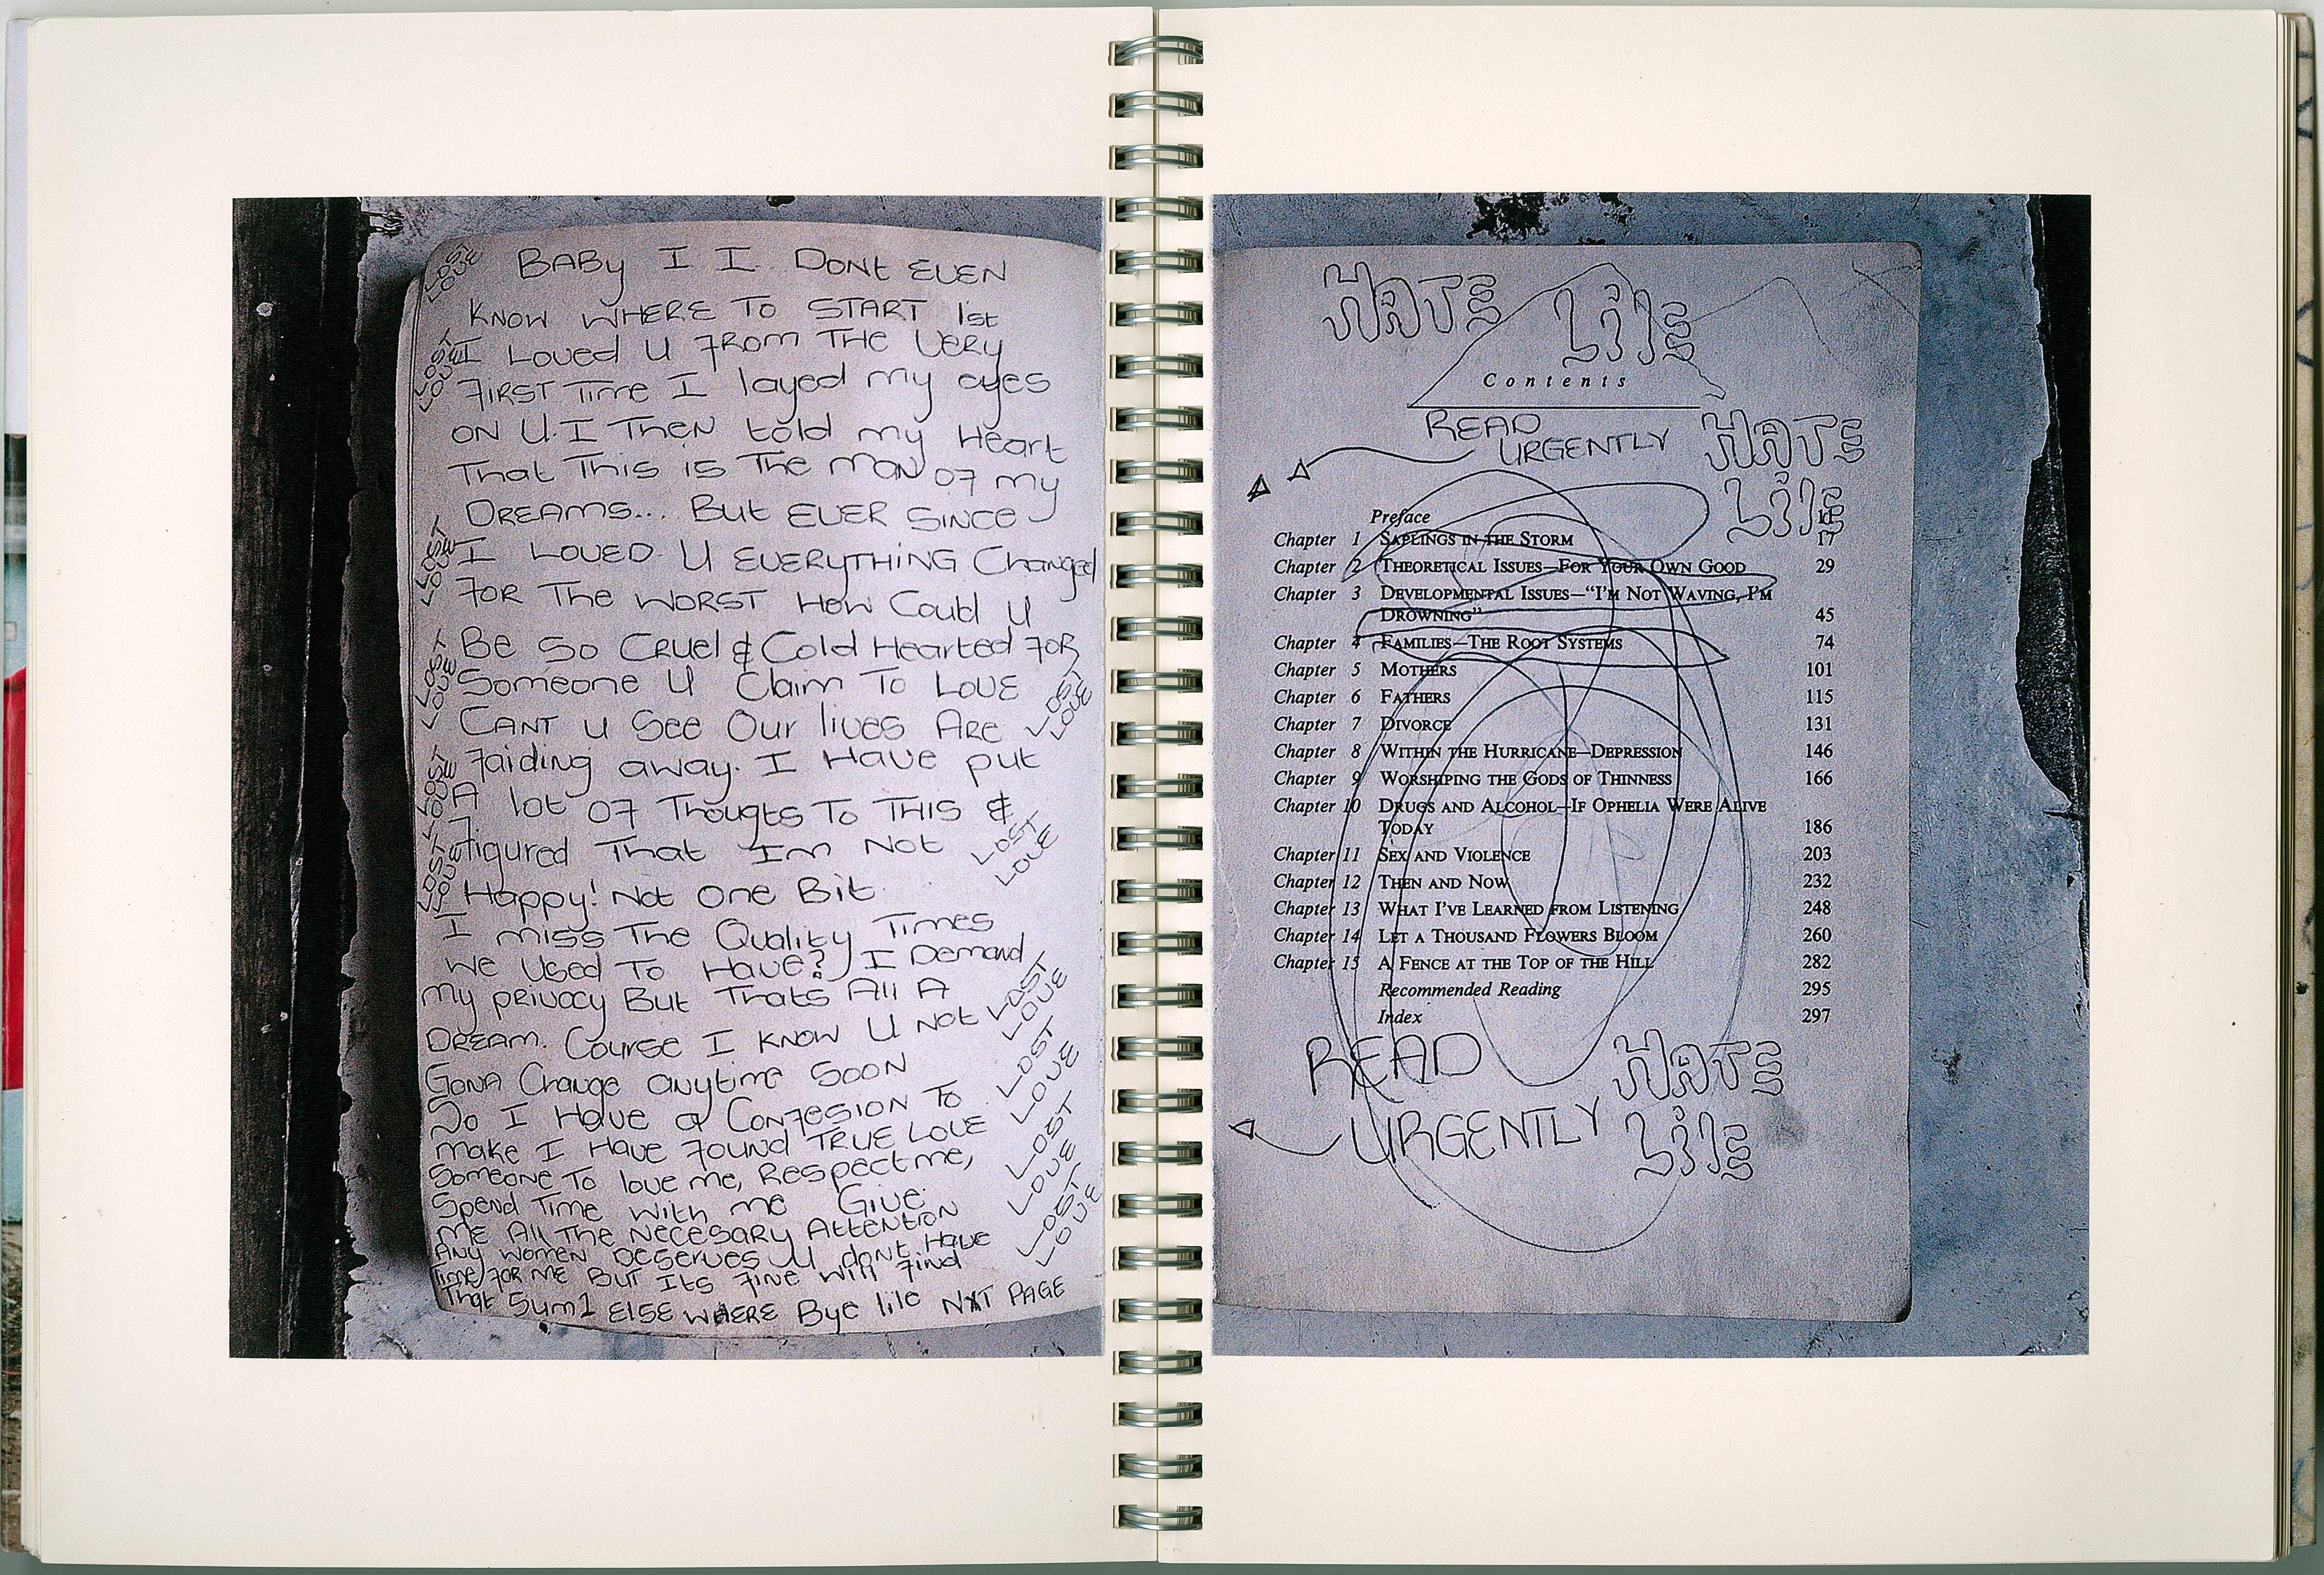 BABY I I DONt EVEN
KNOW WHERE TO START 1st
I LOVEd U FROM THE VERY
FIRST TIME I layed my eyes
ON U. I THEN told my HEart
THat THis is THE MAN OF my
DREAMS... But EVER SINCE
I LOVED U EVERYTHING Changed
FOR THE WORST HOW Could U
BE SO CRUEl & Cold HEarted FOR
SomEoNE U Claim To LOVE
CANT U SEE Our lives ARE
Faiding away. I HAVE put
A lot OF THougts To THIS &
Figured THat Im Not
Happy! Not ONE Bit
I miss THE Quality Times
WE USED TO HAVE? I Demand
My privacy But THats All A
DREAM. COURSE I KNOW U NOt
GONA Change anytime SOON
So I HAVE a CONFESION To
make I HAVE FOUND TRUE LOVE
SomEoNE To love me, REspect me,
Spend Time With me GIVE
ME All THE NECESARY AttENtION
ANy women DESERVES U dont HAVE
Time FOR ME BUt Its Fine will Find
THat Sum1 ELSE WHERE Bye life NXT PAGE
LOST
LOVE
LOST
LOVE
LOST
LOVE
LOST
LOVE
LOST
LOVE
LOST
LOVE
LOST
LOVE
LOST
LOVE
LOST
LOVE
LOST
LOVE
LOST
LOVE
LOST
LOVE
HATE
LifE
Contents
READ
URGENTLY
HATE
LifE
Preface 11
Chapter 1 SAPLINGS IN THE STORM 17
Chapter 2 THEORETICAL ISSUES—FOR YOUR OWN GOOD 29
Chapter 3 DEVELOPMENTAL ISSUES—“I’M NOT WAVING, I’M
DROWNING” 45
Chapter 4 FAMILIES—THE ROOT SYSTEMS 74
Chapter 5 MOTHERS 101
Chapter 6 FATHERS 115
Chapter 7 DIVORCE 131
Chapter 8 WITHIN THE HURRICANE—DEPRESSION 146
Chapter 9 WORSHIPING THE GODS OF THINNESS 166
Chapter 10 DRUGS AND ALCOHOL—IF OPHELIA WERE ALIVE
TODAY 186
Chapter 11 SEX AND VIOLENCE 203
Chapter 12 THEN AND NOW 232
Chapter 13 WHAT I’VE LEARNED FROM LISTENING 248
Chapter 14 LET A THOUSAND FLOWERS BLOOM 260
Chapter 15 A FENCE AT THE TOP OF THE HILL 282
Recommended Reading 295
Index 297
READ
URGENTLY
HATE
LifE